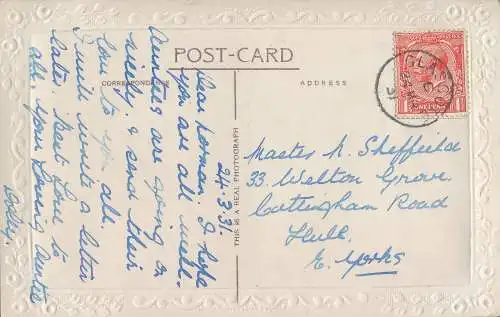 POST-CARD
CORRESPONDENCE
ADDRESS
THIS IS A REAL PHOTOGRAPH
24.3.31.
Dear Norman. I hope
you are all well.
Aunties are going on
nicely & send their
love to you all.
I will write a letter
later. Best Love to
all. Your Loving Auntie
Dolly.
Master N. Sheffield
33. Welton Grove.
Cottingham Road
Hull.
E. Yorks